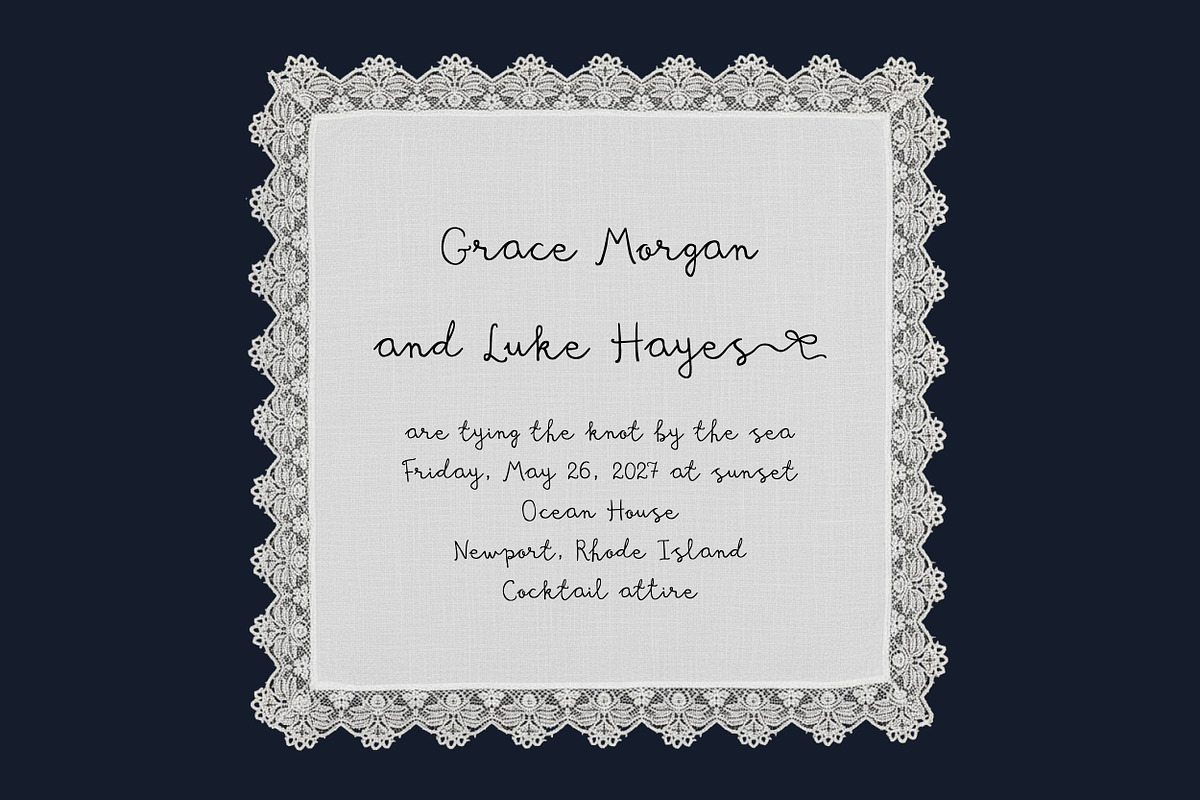 Grace Morgan
and Luke Hayes
are tying the knot by the sea
Friday, May 26, 2027 at sunset
Ocean House
Newport, Rhode Island
Cocktail attire